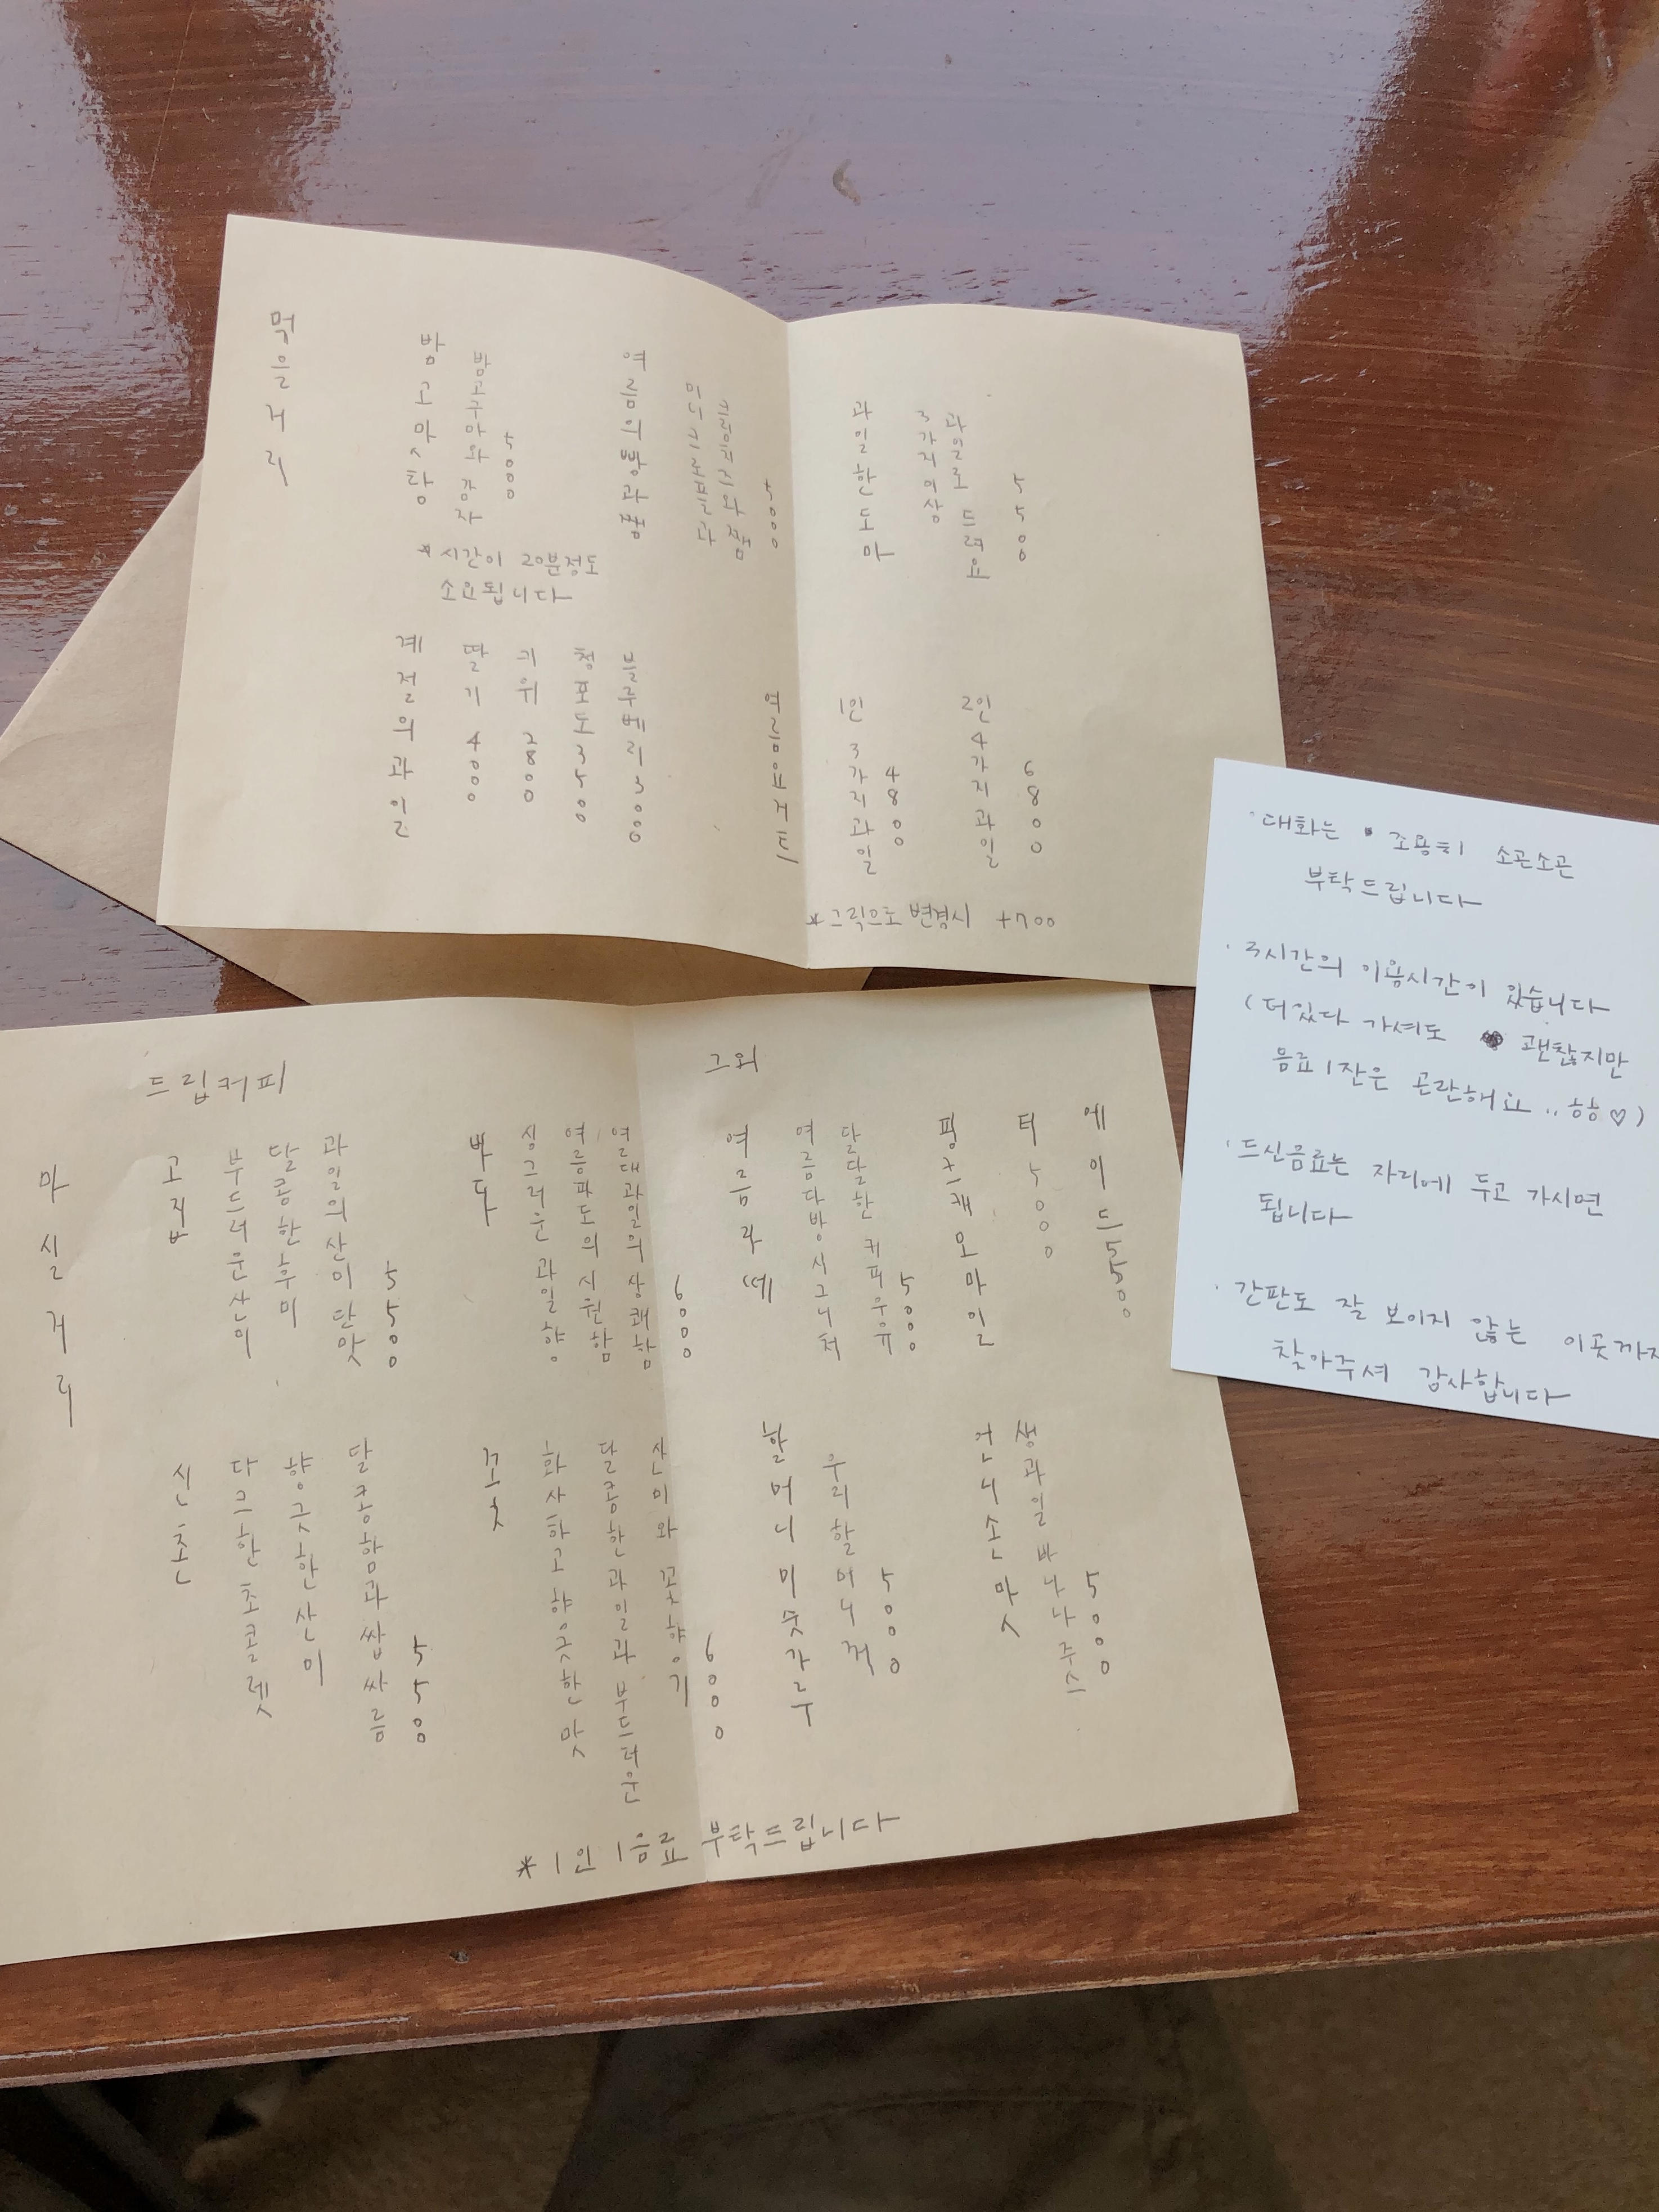 먹을거리
밤고마스탕
밤고구마와 감자
5000
*시간이 20분정도
소요됩니다
여름의빵과쨈
미니크로플과
크림치즈와 쨈
5000
과일한도마
3가지이상
과일로 드려요
5500
계절의과일
딸기 4000
키위 2800
청포도 3500
블루베리 3000
여름요거트
1인
3가지과일
4800
2인
4가지과일
6800
*그릭으로 변경시 +700
마실거리
드립커피
고집
부드러운산미
달콤한후미
과일의산미단맛
5500
바다
싱그러운 과일향
여름파도의 시원함
열대과일의 상쾌함
6000
신촌
다크한 초코렛
향긋한 산미
달콤함과 쌉싸름
5500
꽃
화사하고 향긋한 맛
달콤한 과일과 부드러운
산미와 꽃향기
6000
그외
여름라떼
여름다방 시그니처
달달한 커피우유
5500
핑크캐모마일
티 5000
에이드 5500
할머니미숫가루
우리할머니꺼
5000
언니손맛
생과일 바나나주스
5000
*1인 1음료 부탁드립니다
·대화는 조용히 소곤소곤
부탁드립니다
·3시간의 이용시간이 있습니다
(더있다 가셔도 괜찮지만
음료1잔은 곤란해요.. 핳♡)
·드신음료는 자리에 두고 가시면
됩니다
·간판도 잘 보이지 않는 이곳까지
찾아주셔 감사합니다